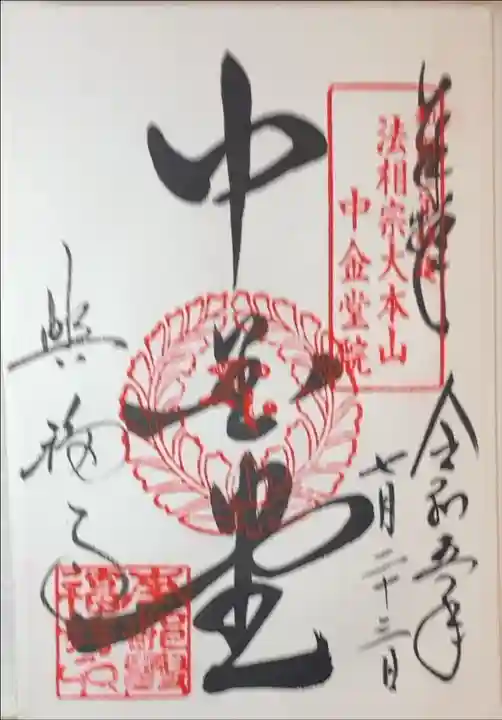 奉拝
法相宗大本山
中金堂院
令和五年
七月二十三日
中金堂
興福寺